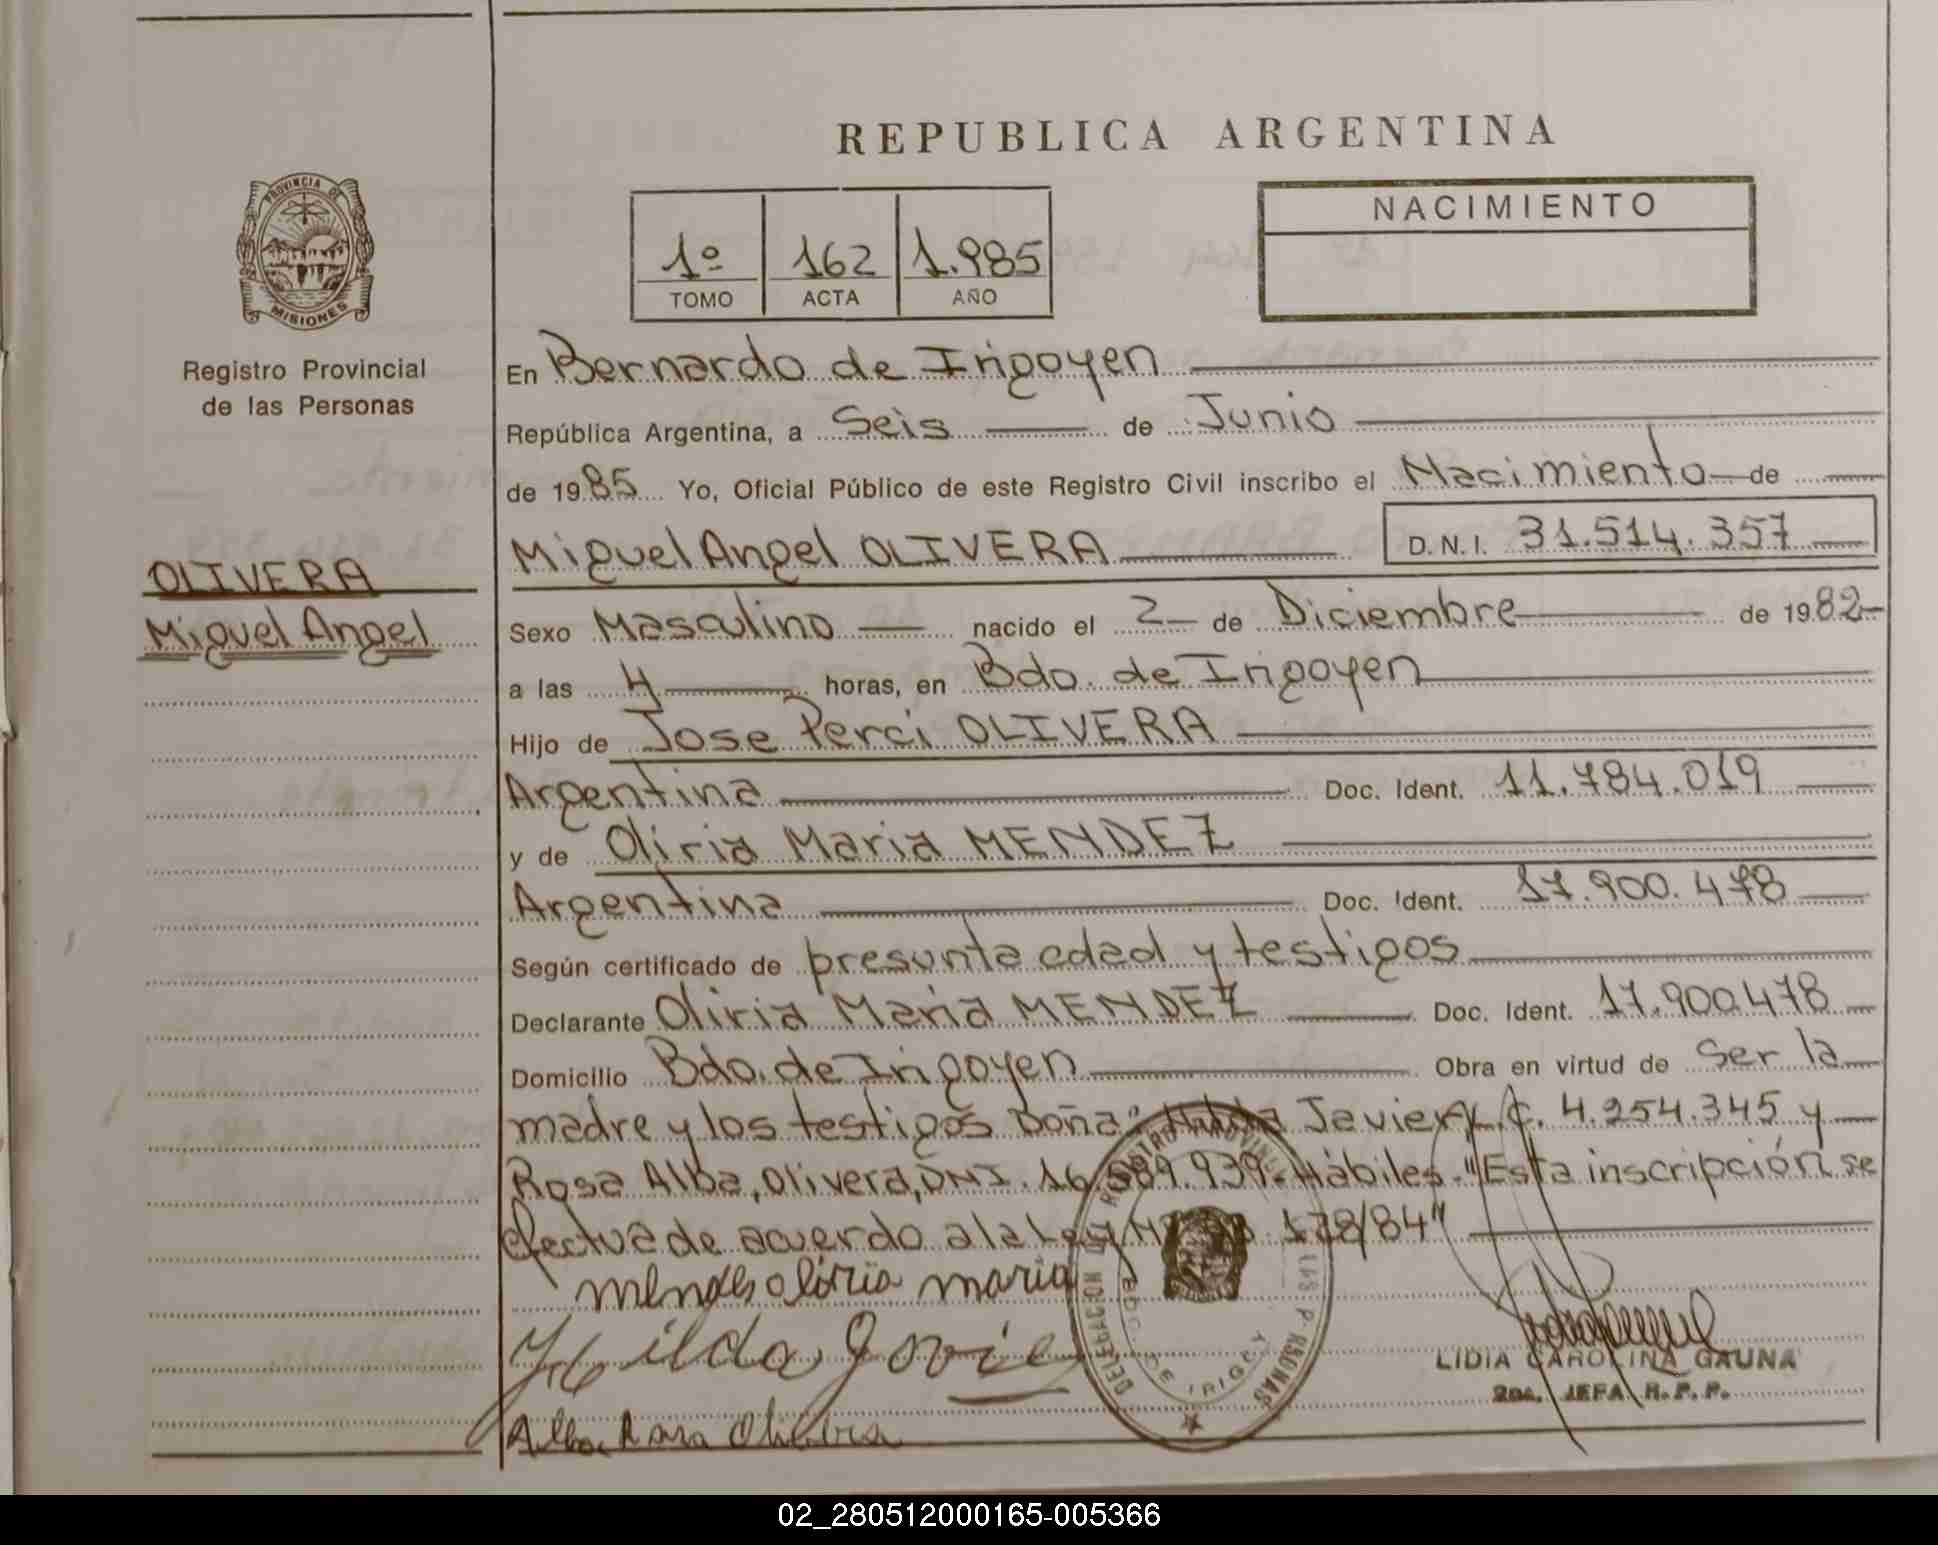 REPUBLICA ARGENTINA
PROVINCIA DE
MISIONES
Registro Provincial
de las Personas
1º 162 1.985
TOMO ACTA AÑO
NACIMIENTO
En Bernardo de Irigoyen
República Argentina, a Seis de Junio
de 1985 Yo, Oficial Público de este Registro Civil inscribo el Nacimiento de
Miguel Angel OLIVERA D.N.I. 31.514.357
OLIVERA
Miguel Angel
Sexo Masculino nacido el 2 de Diciembre de 1982
a las 4 horas, en Bdo. de Irigoyen
Hijo de Jose Perci OLIVERA
Argentina Doc. Ident. 11.784.019
y de Oliria Maria MENDEZ
Argentina Doc. Ident. 17.900.478
Según certificado de presunta edad y testigos
Declarante Oliria Maria MENDEZ Doc. Ident. 17.900.478
Domicilio Bdo. de Irigoyen Obra en virtud de Ser la
madre y los testigos Doña: Hilda Javier L.C. 4.254.345 y
Rosa Alba, Olivera, DNI. 16.589.939. Hàbiles. "Esta inscripción se
efectua de acuerdo a la Ley 178/84"
mendes oliria maria
Hilda
Alba Rosa Oliveira
LIDIA CAROLINA GAUNA
2da. JEFA R.P.P.
02_280512000165-005366